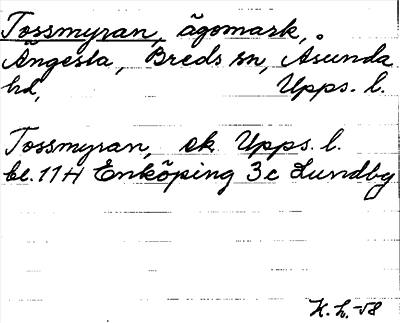 Tossmyran, ägomark,
Ängesta, Breds sn, Åsunda
hd, Upps. l.
Tossmyran, ek Upps. l.
bl. 11 H Enköping 3 c Lundby
K. L. -58